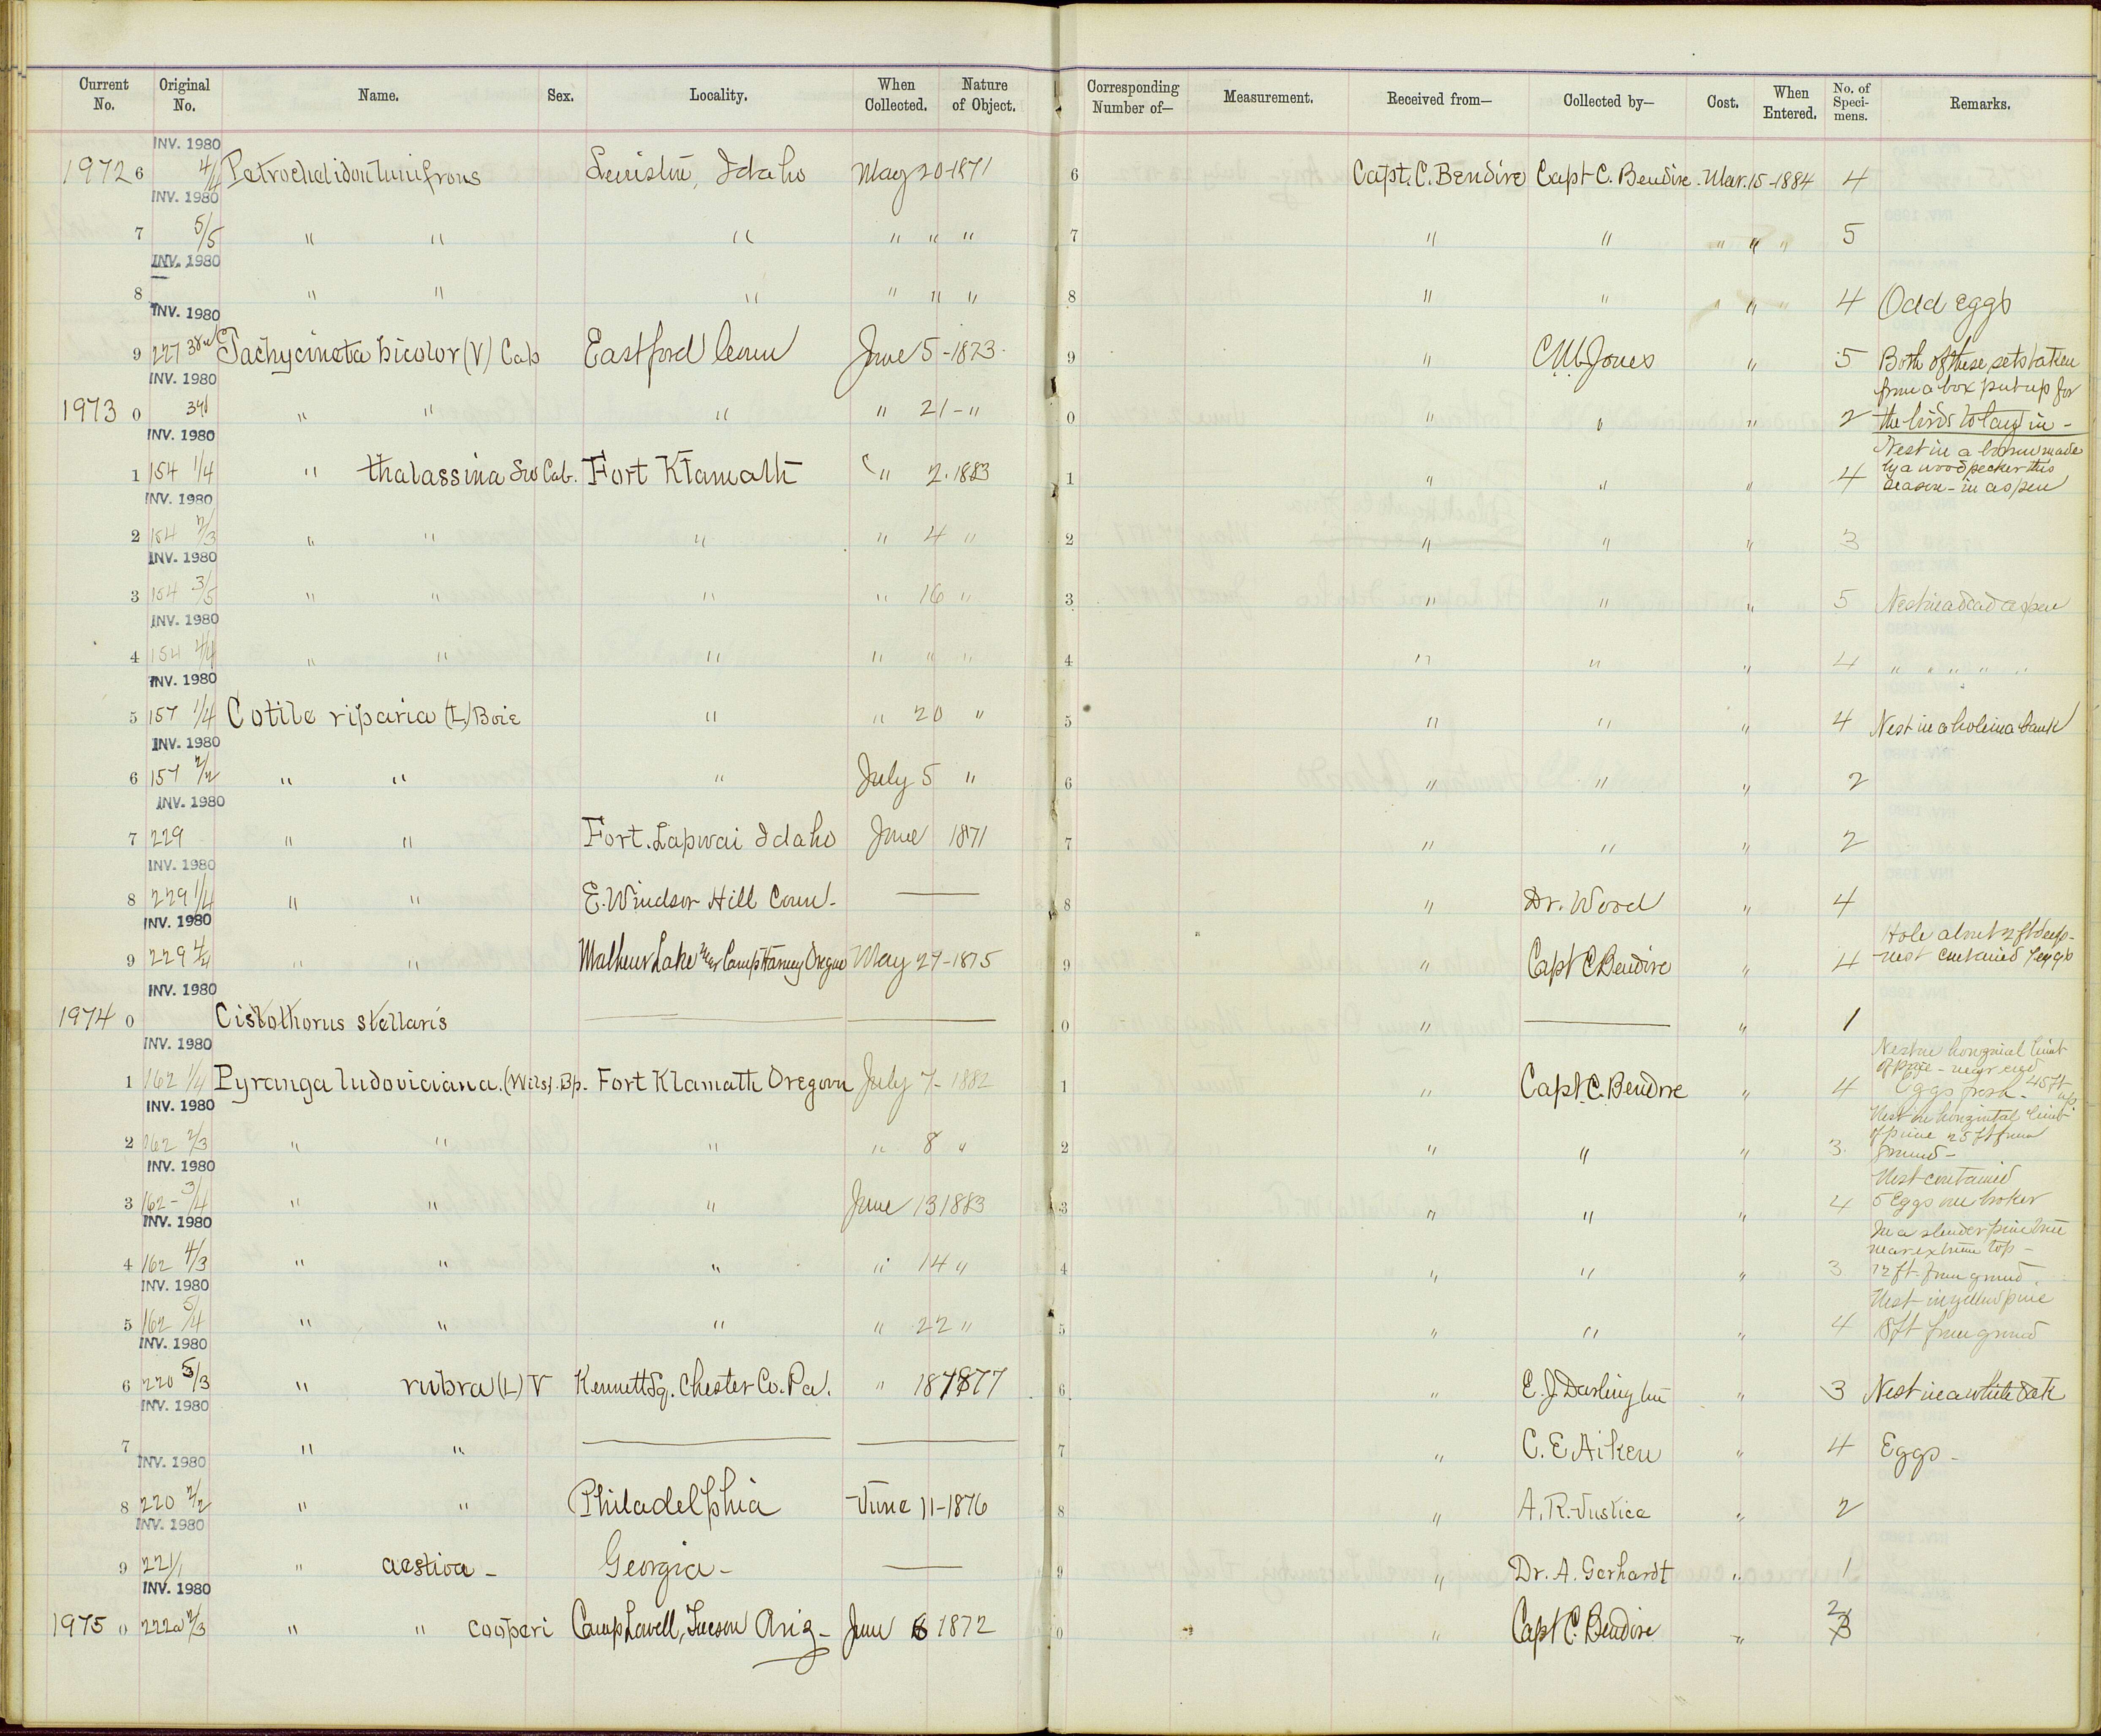 Current No. Original No. Name. Sex. Locality. When Collected. Nature of Object. Corresponding Number of— Measurement. Received from— Collected by— Cost. When Entered. No. of Specimens. Remarks.
INV. 1980
1972 6 4/4 Petrochelidon lunifrons Lewiston, Idaho May 20-1871 6 Capt. C. Bendire Capt C. Bendire Mar. 15-1884 4
INV. 1980
7 5/5 " " " " " " 7 " " " " " 5
INV. 1980
8 " " " " " " 8 " " " 4 Odd eggs
INV. 1980
9 227 Tachycineta bicolor (V) Cab Eastford Conn June 5-1873 9 " C.M. Jones " 5 Both of these sets taken
INV. 1980
from a box put up for
1973 0 " " " " 21-" 0 " " " 2 the birds to lay in -
INV. 1980
Nest in a burrow made
1 154 1/4 " thalassina Sw Cab. Fort Klamath " 2. 1883 1 " " " 4 by a woodpecker this
INV. 1980
season - in aspen
2 154 2/3 " " " " 4 " 2 " " " 3
INV. 1980
3 154 3/5 " " " " 16 " 3 " " " 5 Nest in a dead aspen
INV. 1980
4 154 4/4 " " " " " " 4 " " " 4 " " " " "
INV. 1980
5 157 1/4 Cotile riparia (L) Boie " " 20 " 5 " " " 4 Nest in a hole in a bank
INV. 1980
6 157 2/2 " " " July 5 " 6 " " " 2
INV. 1980
7 229 " " Fort Lapwai Idaho June 1871 7 " " " 2
INV. 1980
8 229 1/4 " " E. Windsor Hill Conn. — 8 " Dr. Wood " 4
INV. 1980
Hole about 2 ft deep -
9 229 4/4 " " Malheur Lake near Camp Harney Oregon May 27-1875 9 " Capt C Bendire " 4 nest contained 7 eggs
INV. 1980
1974 0 Cistothorus stellaris — — 0 " — " 1
INV. 1980
Nest on horizontal limb
of pine - near end
1 162 1/4 Pyranga ludoviciana. (Wils). Bp. Fort Klamath Oregon July 7- 1882 1 " Capt. C. Bendire " 4 Eggs fresh. 45 ft up
INV. 1980
Nest on horizontal limb
of pine 25 ft from
2 162 2/3 " " " " 8 " 2 " " " 3. ground -
INV. 1980
Nest contained
3 162 - 3/4 " " " June 13 1883 3 " " " 4 5 Eggs one broken
INV. 1980
In a slender pine tree
near extreme top -
4 162 4/3 " " " " 14 " 4 " " " 3 12 ft from ground.
INV. 1980
Nest in yellow pine
5 162 5/4 " " " " 22 " 5 " " " 4 18 ft from ground
INV. 1980
6 220 5/3 " rubra (L) V Kennett Sq. Chester Co. Pa. " 18 1877 6 " E. J. Darlington " 3 Nest in a white oak
INV. 1980
7 " " — — 7 " C. E. Aiken " 4 Eggs -
INV. 1980
8 220 2/2 " " Philadelphia June 11-1876 8 " A. R. Justice " 2
INV. 1980
9 221/1 " aestiva - Georgia - — 9 " Dr. A. Gerhardt " 1
INV. 1980
1975 0 222a 2/3 " " cooperi Camp Lowell, Tucson Ariz - June 6 1872 0 " Capt C. Bendire " 2 3